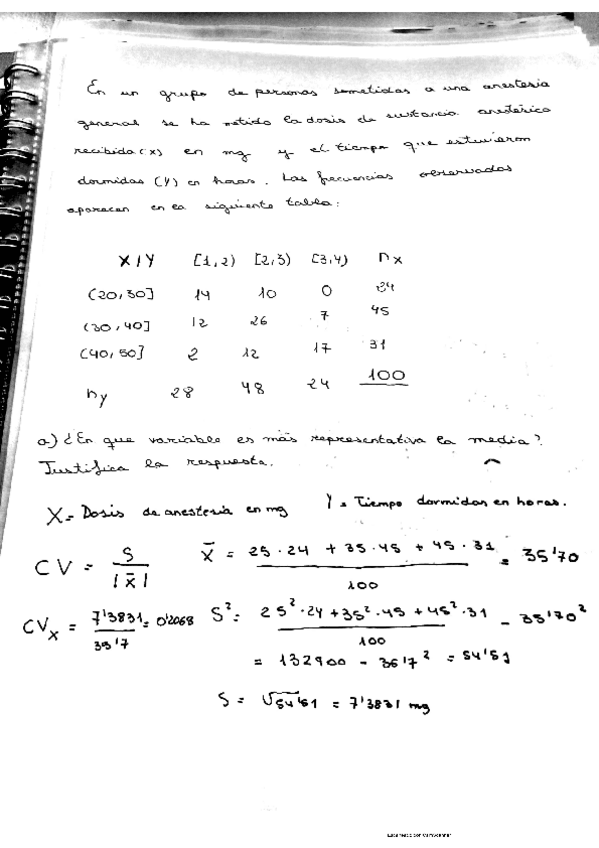 En un grupo de personas sometidas a una anestesia
general se ha medido la dosis de sustancia anestésica
recibida (X) en mg y el tiempo que estuvieron
dormidas (Y) en horas. Las frecuencias observadas
aparecen en la siguiente tabla:
X/Y [1,2) [2,3) [3,4) nx
(20,30] 14 10 0 24
(30,40] 12 26 7 45
(40,50] 2 12 17 31
ny 28 48 24 100
a) ¿En que variable es más representativa la media?
Justifica la respuesta.
X = Dosis de anestesia en mg Y = Tiempo dormidas en horas.
CV = S / |x̄| x̄ = 25·24 + 35·45 + 45·31 / 100 = 35'70
CVx = 7'3831 / 35'7 = 0'2068 S² = 25²·24 + 35²·45 + 45²·31 / 100 - 35'70²
= 132900 - 35'7² = 54'51
S = √54'51 = 7'3831 mg